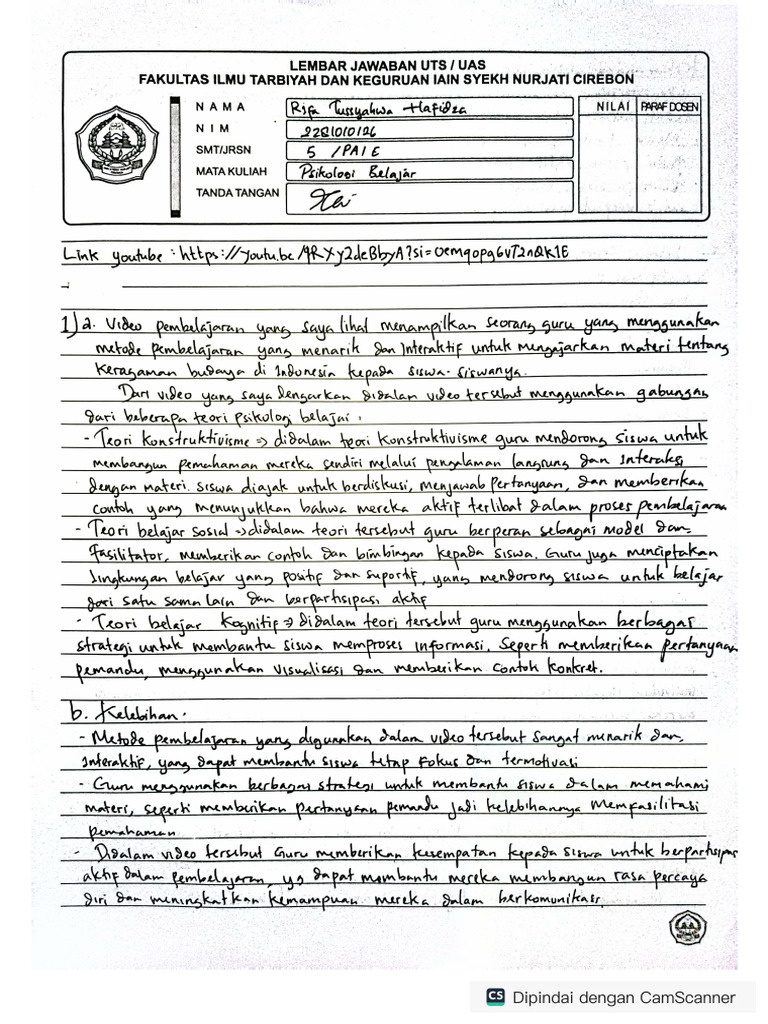 LEMBAR JAWABAN UTS / UAS
FAKULTAS ILMU TARBIYAH DAN KEGURUAN IAIN SYEKH NURJATI CIREBON
NAMA Rifa Tussyahwa Hafidza NILAI PARAF DOSEN
NIM 2281010126
SMT/JRSN 5 / PAI E
MATA KULIAH Psikologi Belajar
TANDA TANGAN
Link youtube : https://youtu.be/
1) a. Video pembelajaran yang saya lihat menampilkan seorang guru yang menggunakan
metode pembelajaran yang menarik dan interaktif untuk mengajarkan materi tentang
keragaman budaya di Indonesia kepada siswa-siswanya.
Dari video yang saya dengarkan didalam video tersebut menggunakan gabungan
dari beberapa teori psikologi belajar :
- Teori konstruktivisme => didalam teori konstruktivisme guru mendorong siswa untuk
membangun pemahaman mereka sendiri melalui pengalaman langsung dan interaksi
dengan materi. siswa diajak untuk berdiskusi, menjawab pertanyaan, dan memberikan
contoh yang menunjukkan bahwa mereka aktif terlibat dalam proses pembelajaran
- Teori belajar sosial => didalam teori tersebut guru berperan sebagai model dan
fasilitator, memberikan contoh dan bimbingan kepada siswa. Guru juga menciptakan
lingkungan belajar yang positif dan suportif, yang mendorong siswa untuk belajar
dari satu sama lain dan berpartisipasi aktif
- Teori belajar Kognitif => didalam teori tersebut guru menggunakan berbagai
strategi untuk membantu siswa memproses informasi, seperti memberikan pertanyaan
pemandu, menggunakan visualisasi dan memberikan contoh konkret.
b. Kelebihan.
- Metode pembelajaran yang digunakan dalam video tersebut sangat menarik dan
interaktif, yang dapat membantu siswa tetap fokus dan termotivasi
- Guru menggunakan berbagai strategi untuk membantu siswa dalam memahami
materi, seperti memberikan pertanyaan pemandu jadi kelebihannya memfasilitasi
pemahaman
- Didalam video tersebut Guru memberikan kesempatan kepada siswa untuk berpartisipasi
aktif dalam pembelajaran, yg dapat membantu mereka membangun rasa percaya
diri dan meningkatkan kemampuan mereka dalam berkomunikasi.
CS Dipindai dengan CamScanner